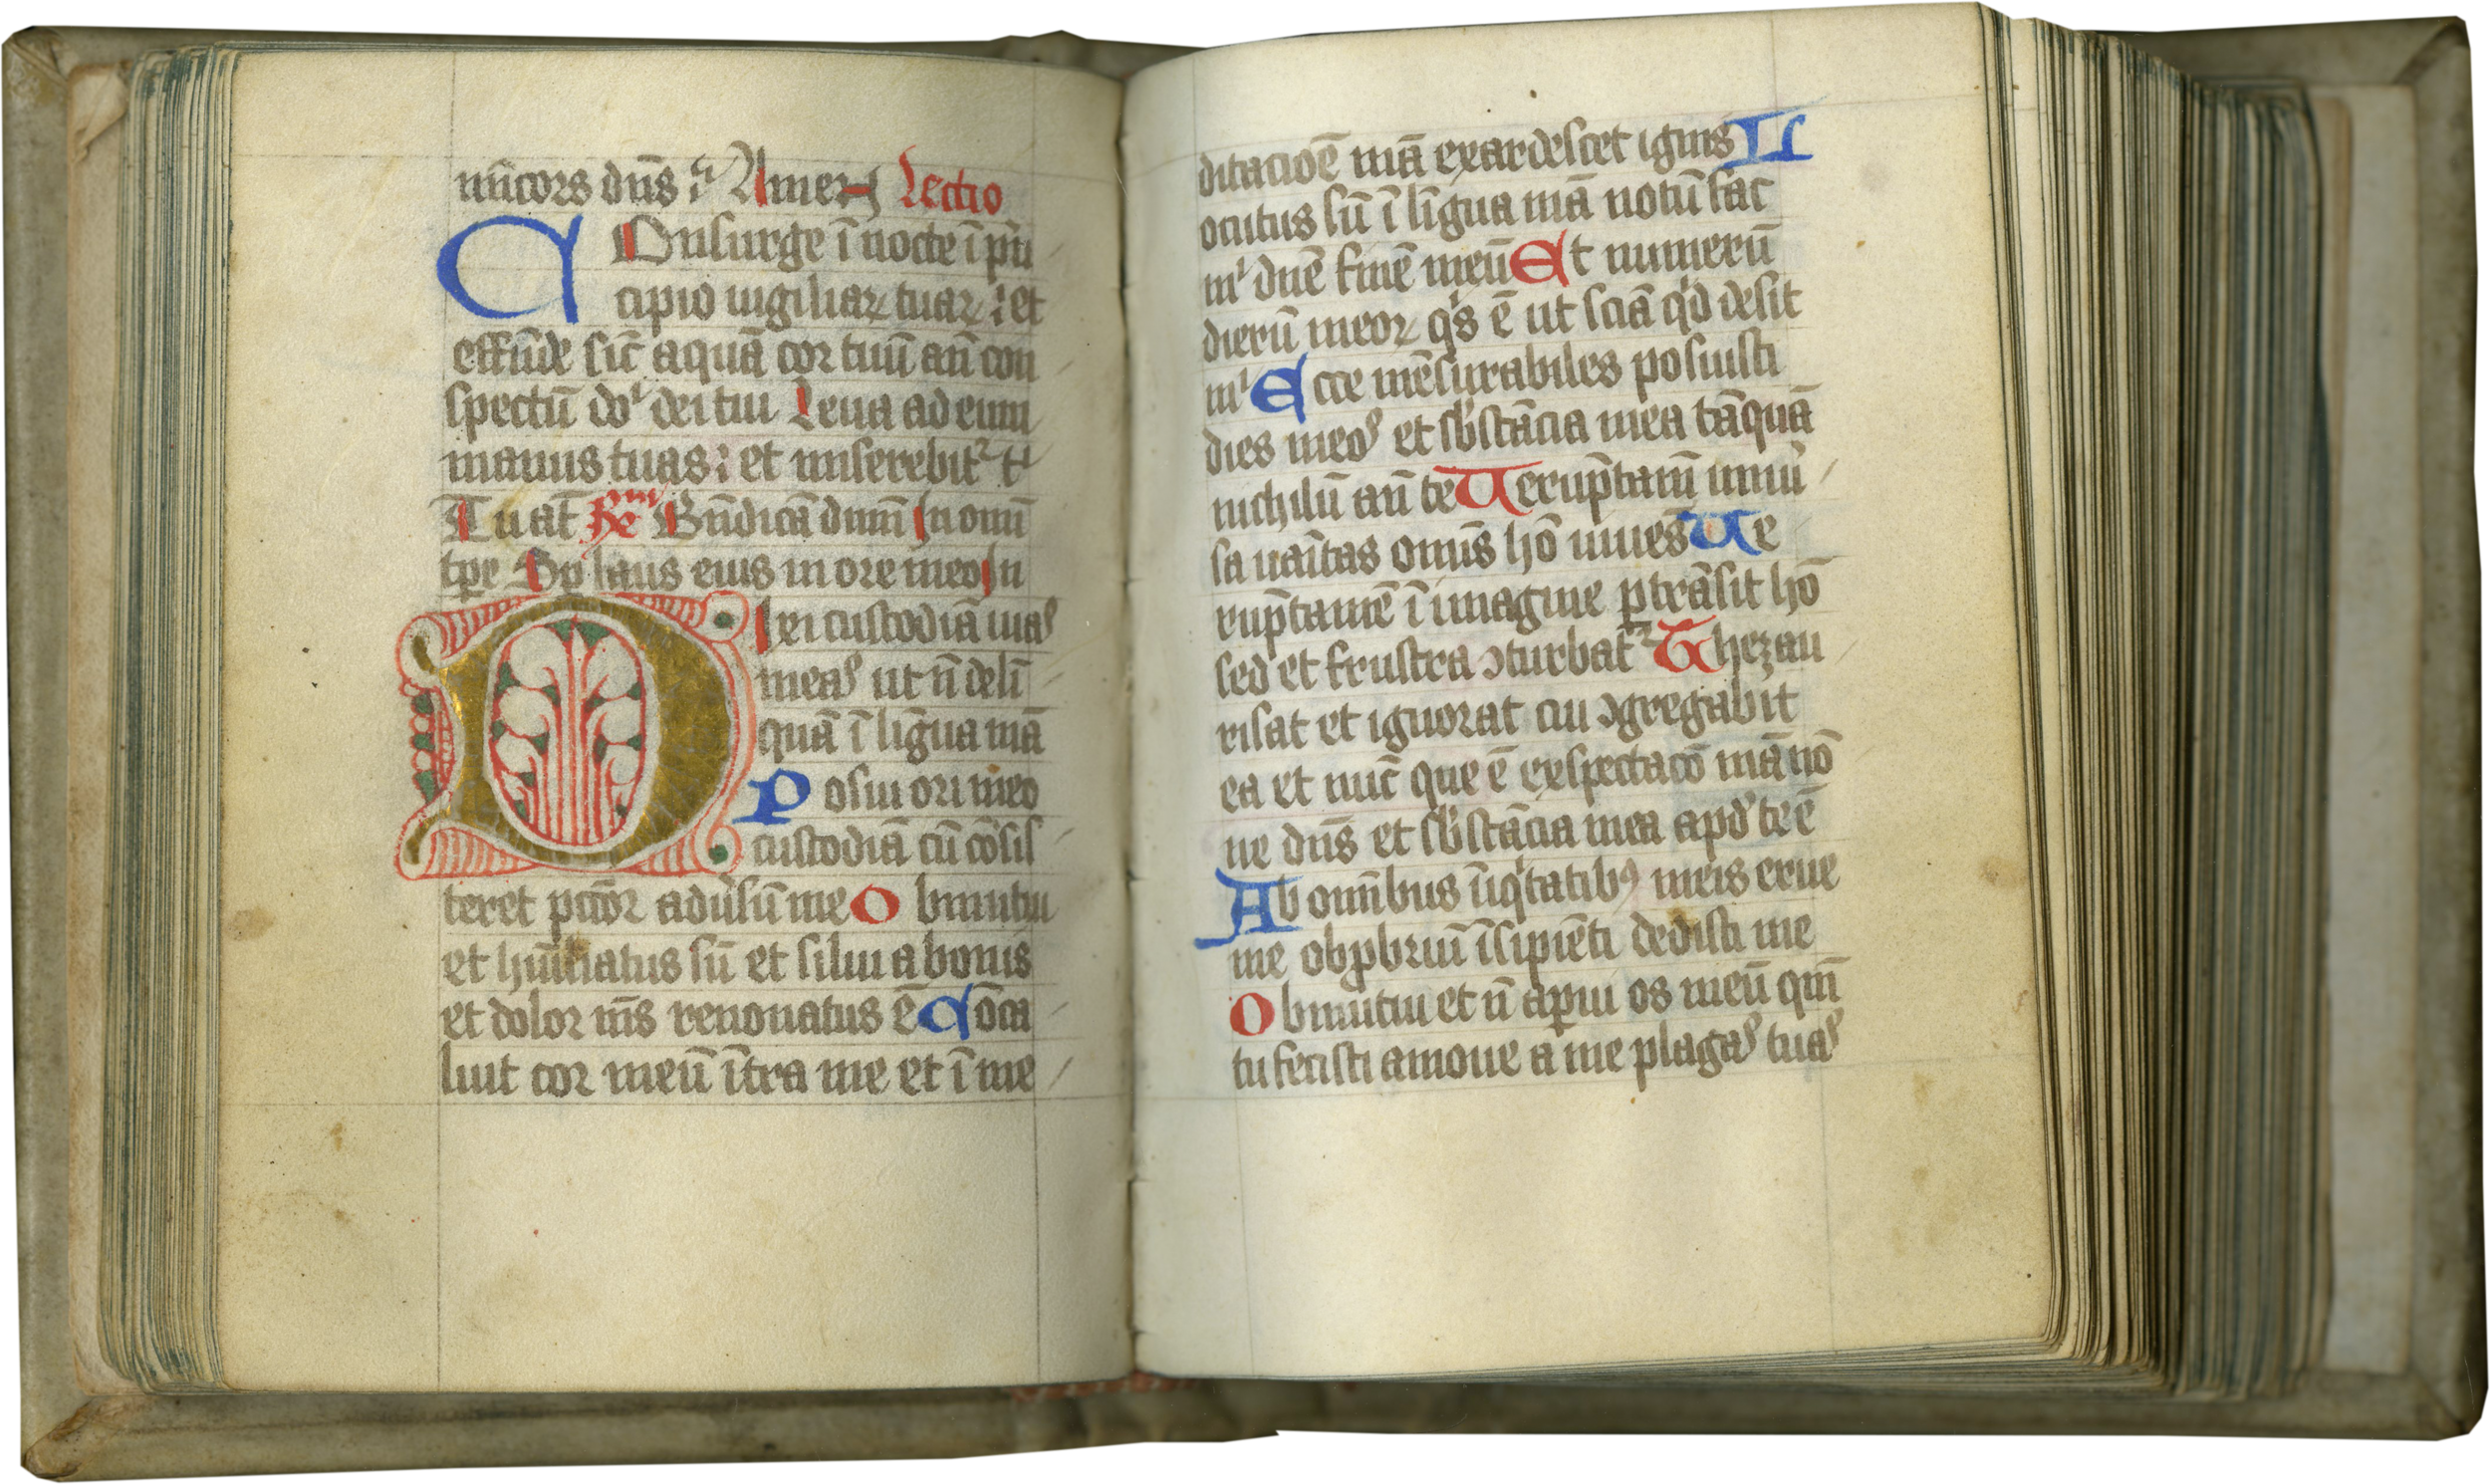 mīcors dn̄s : Amen Lectio
COnsurge ī nocte ī pͥn
cipio uigiliaꝝ tuaꝝ : et
effūde sic̄ aquā cor tuū an̄ con
spectū doͥ dei tui Leua ad eum
manus tuas : et miserebit᷑ tͥ
Tu at̄ Bn̄dicā dnm̄ In om̄i
tp̄e Sp̄ laus eius in ore meo In
DIxi custodiā uias
meas ut n̄ delī
quā ī līgua mā
Posui ori meo
custodiā cū cōsis
teret pctōr adūsū me Obmutui
et hūiliatus sū et silui a bonis
et dolor ms̄ renouatus ē Cōca
luit cor meū īt̄ra me et ī me
ditacioē mā exardescet ignis L
ocutus sū ī līgua mā notū fac
mͥ dn̄e finē meū Et numerū
dierū meoꝝ qͥs ē ut sciā qͥd desit
mͥ Ecce mēsurabiles posuisti
dies meos et sb̄stācia mea tāquā
nichilū an̄ te Uerūptam̄ uniū
sa uaītas om̄s hō uiues̄ Ue
rūptamē ī imagine ꝑtrāsit hō
sed et frustra ꝯturbat᷑ Thezau
risat et ignorat cui ꝯgregabit
ea et nūc que ē exspectacō mā nō
ne dn̄s et sb̄stācia mea apd̄ te ē
Ab om̄ibus īiqͥtatibꝰ meis erue
me obp̄briū īsipiēti dedisti me
Obmutui et n̄ aꝑui os meū qm̄
tu fecisti amoue a me plagas tuas